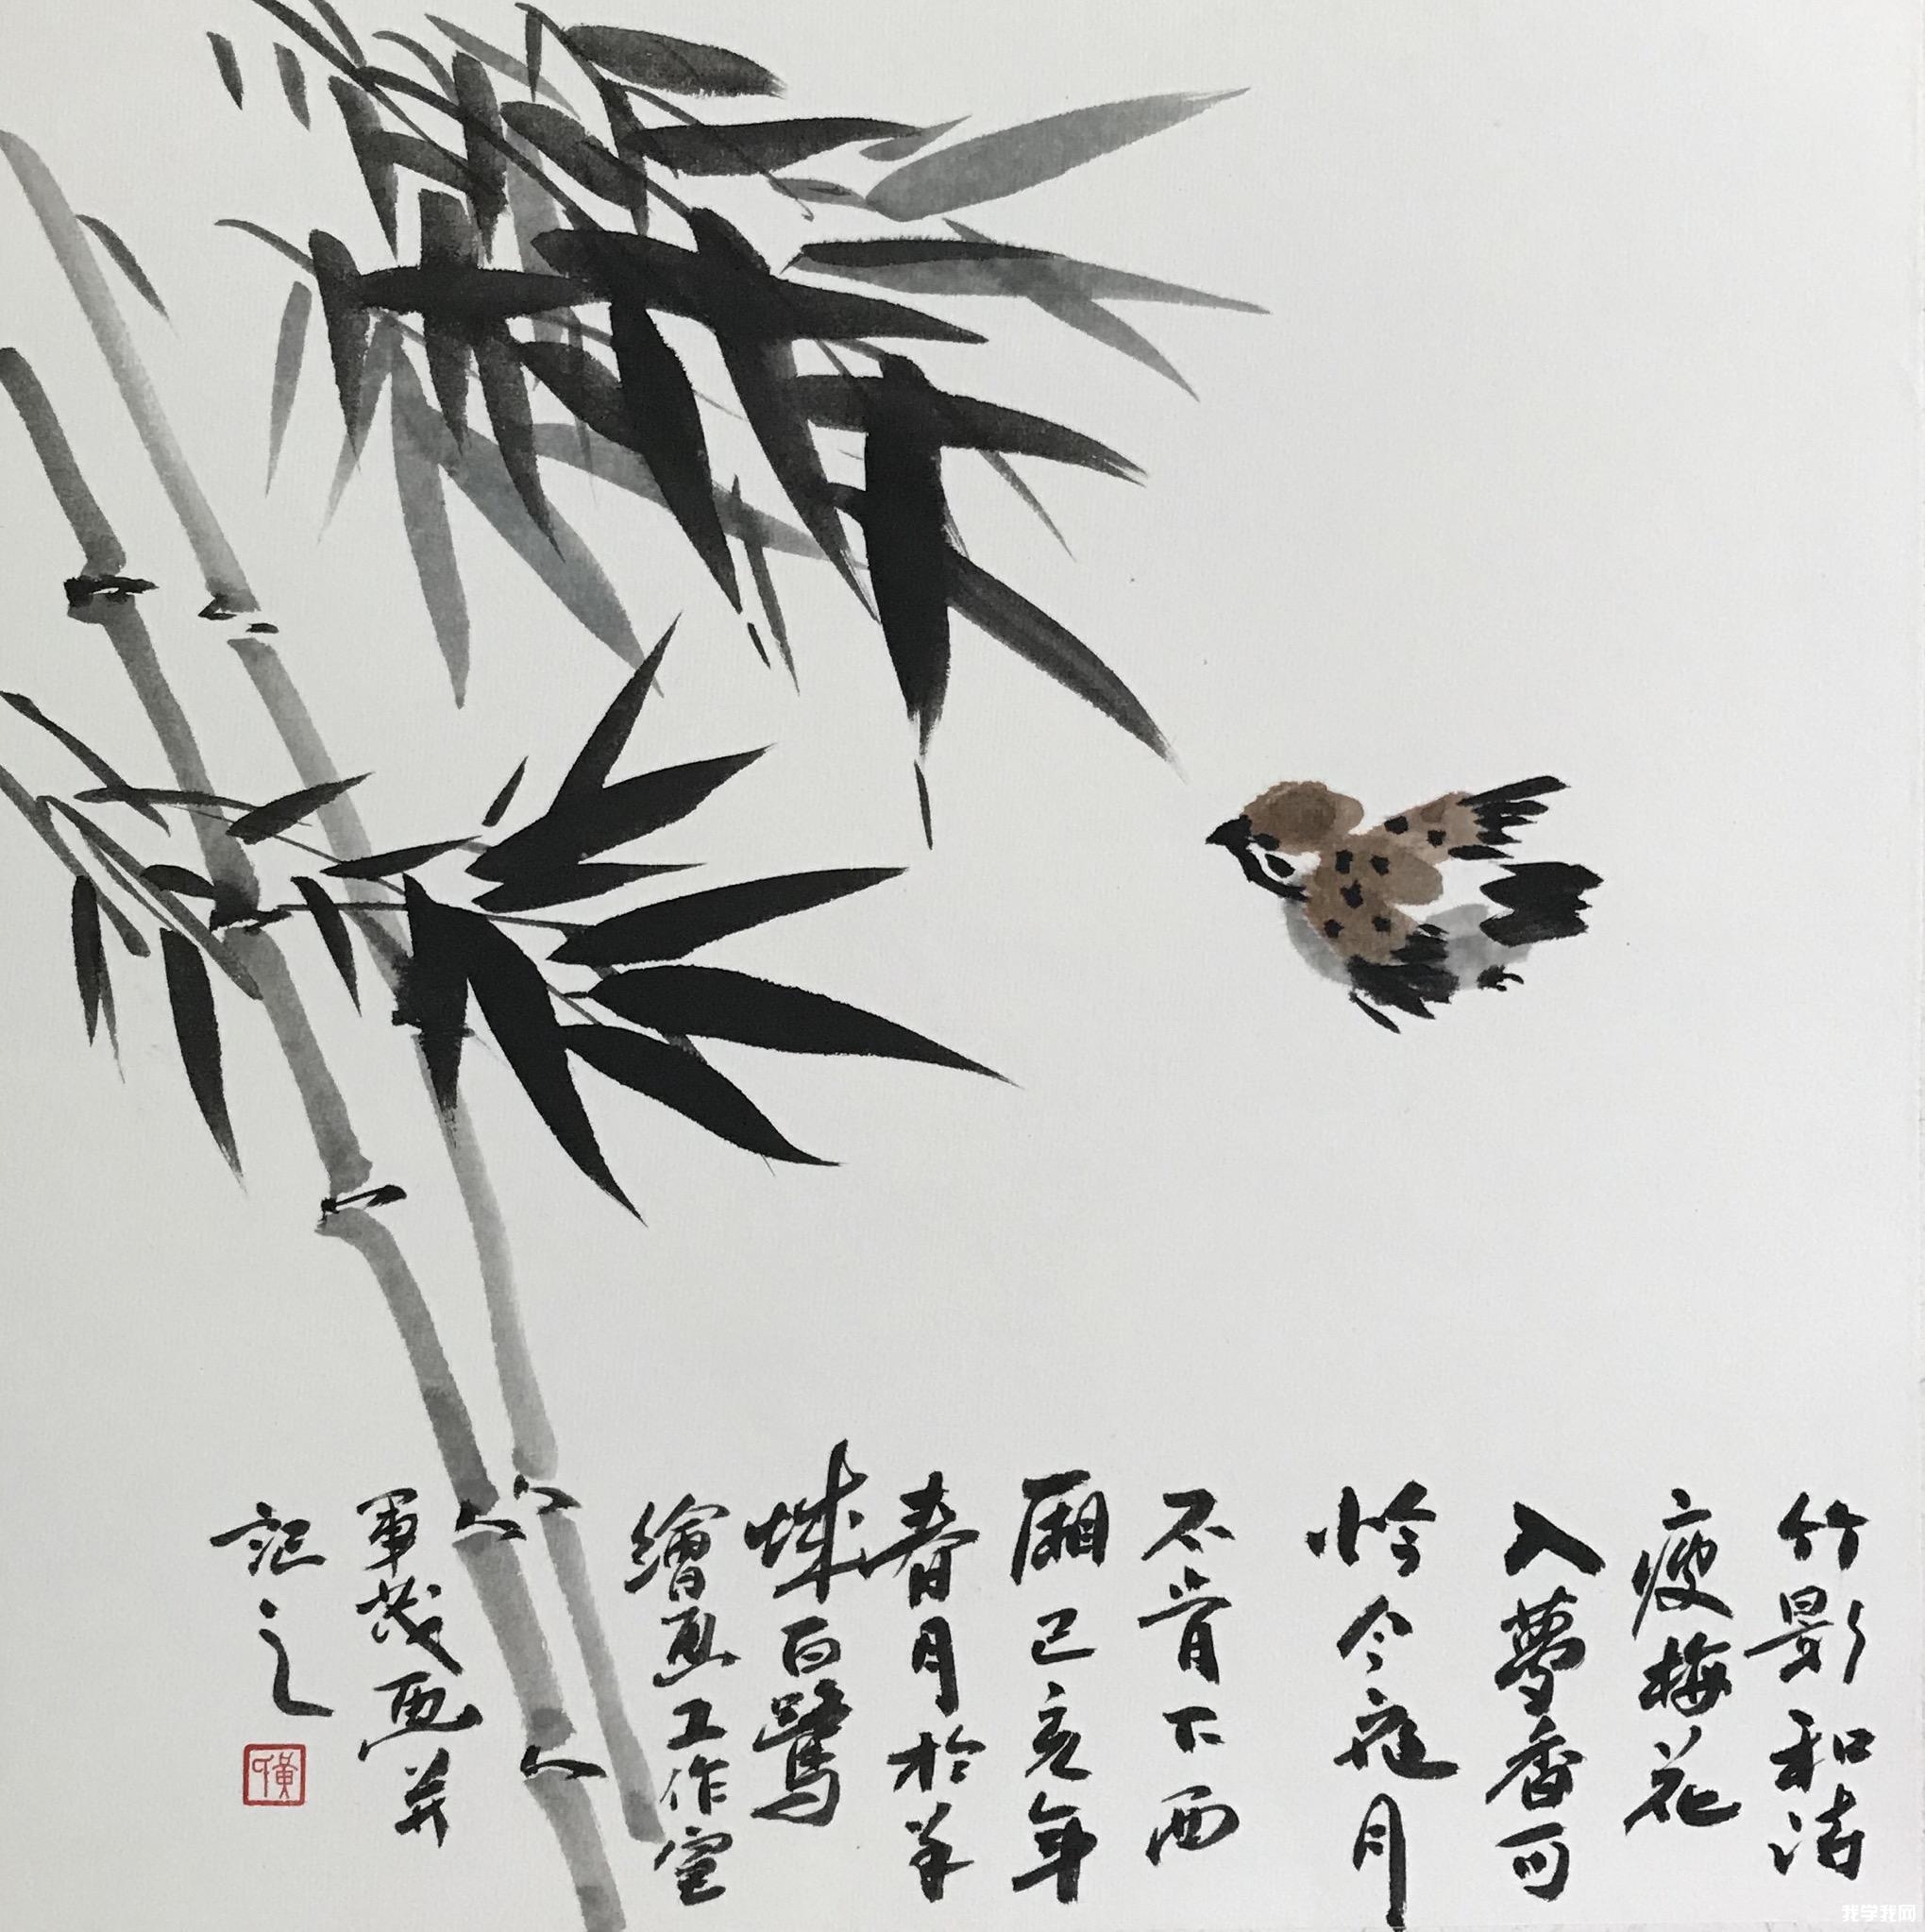 竹影和诗
瘦梅花
入夢香可
怜今夜月
不肯下西
厢己亥年
春月於羊
城白鷺
繪画工作室
軍茂画并
記之
我学我网